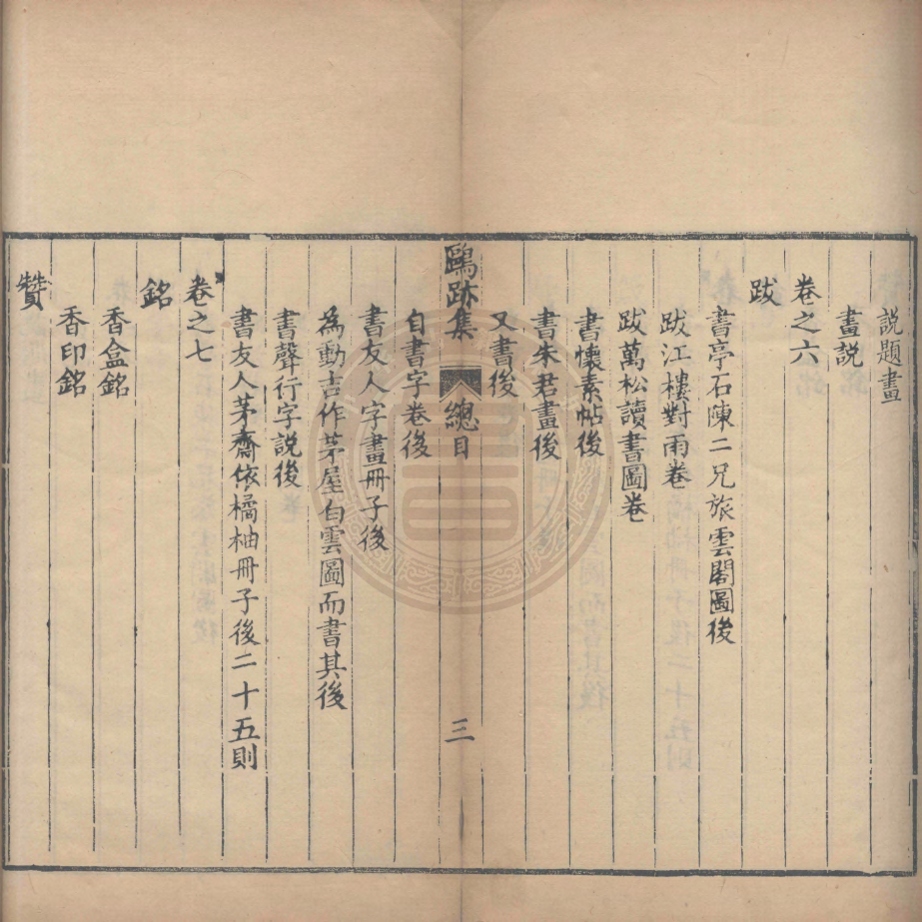 説題畫
畫説
卷之六
跋
書亭石陳二兄旅雲閣圖後
跋江樓對雨卷
跋萬松讀書圖卷
書懷素帖後
書朱君畫後
又書後
鷗跡集 總目 三
自書字卷後
書友人字畫冊子後
為動吉作茅屋白雲圖而書其後
書聲行字説後
書友人茅齋依橘柚冊子後二十五則
卷之七
銘
香盒銘
香印銘
贊